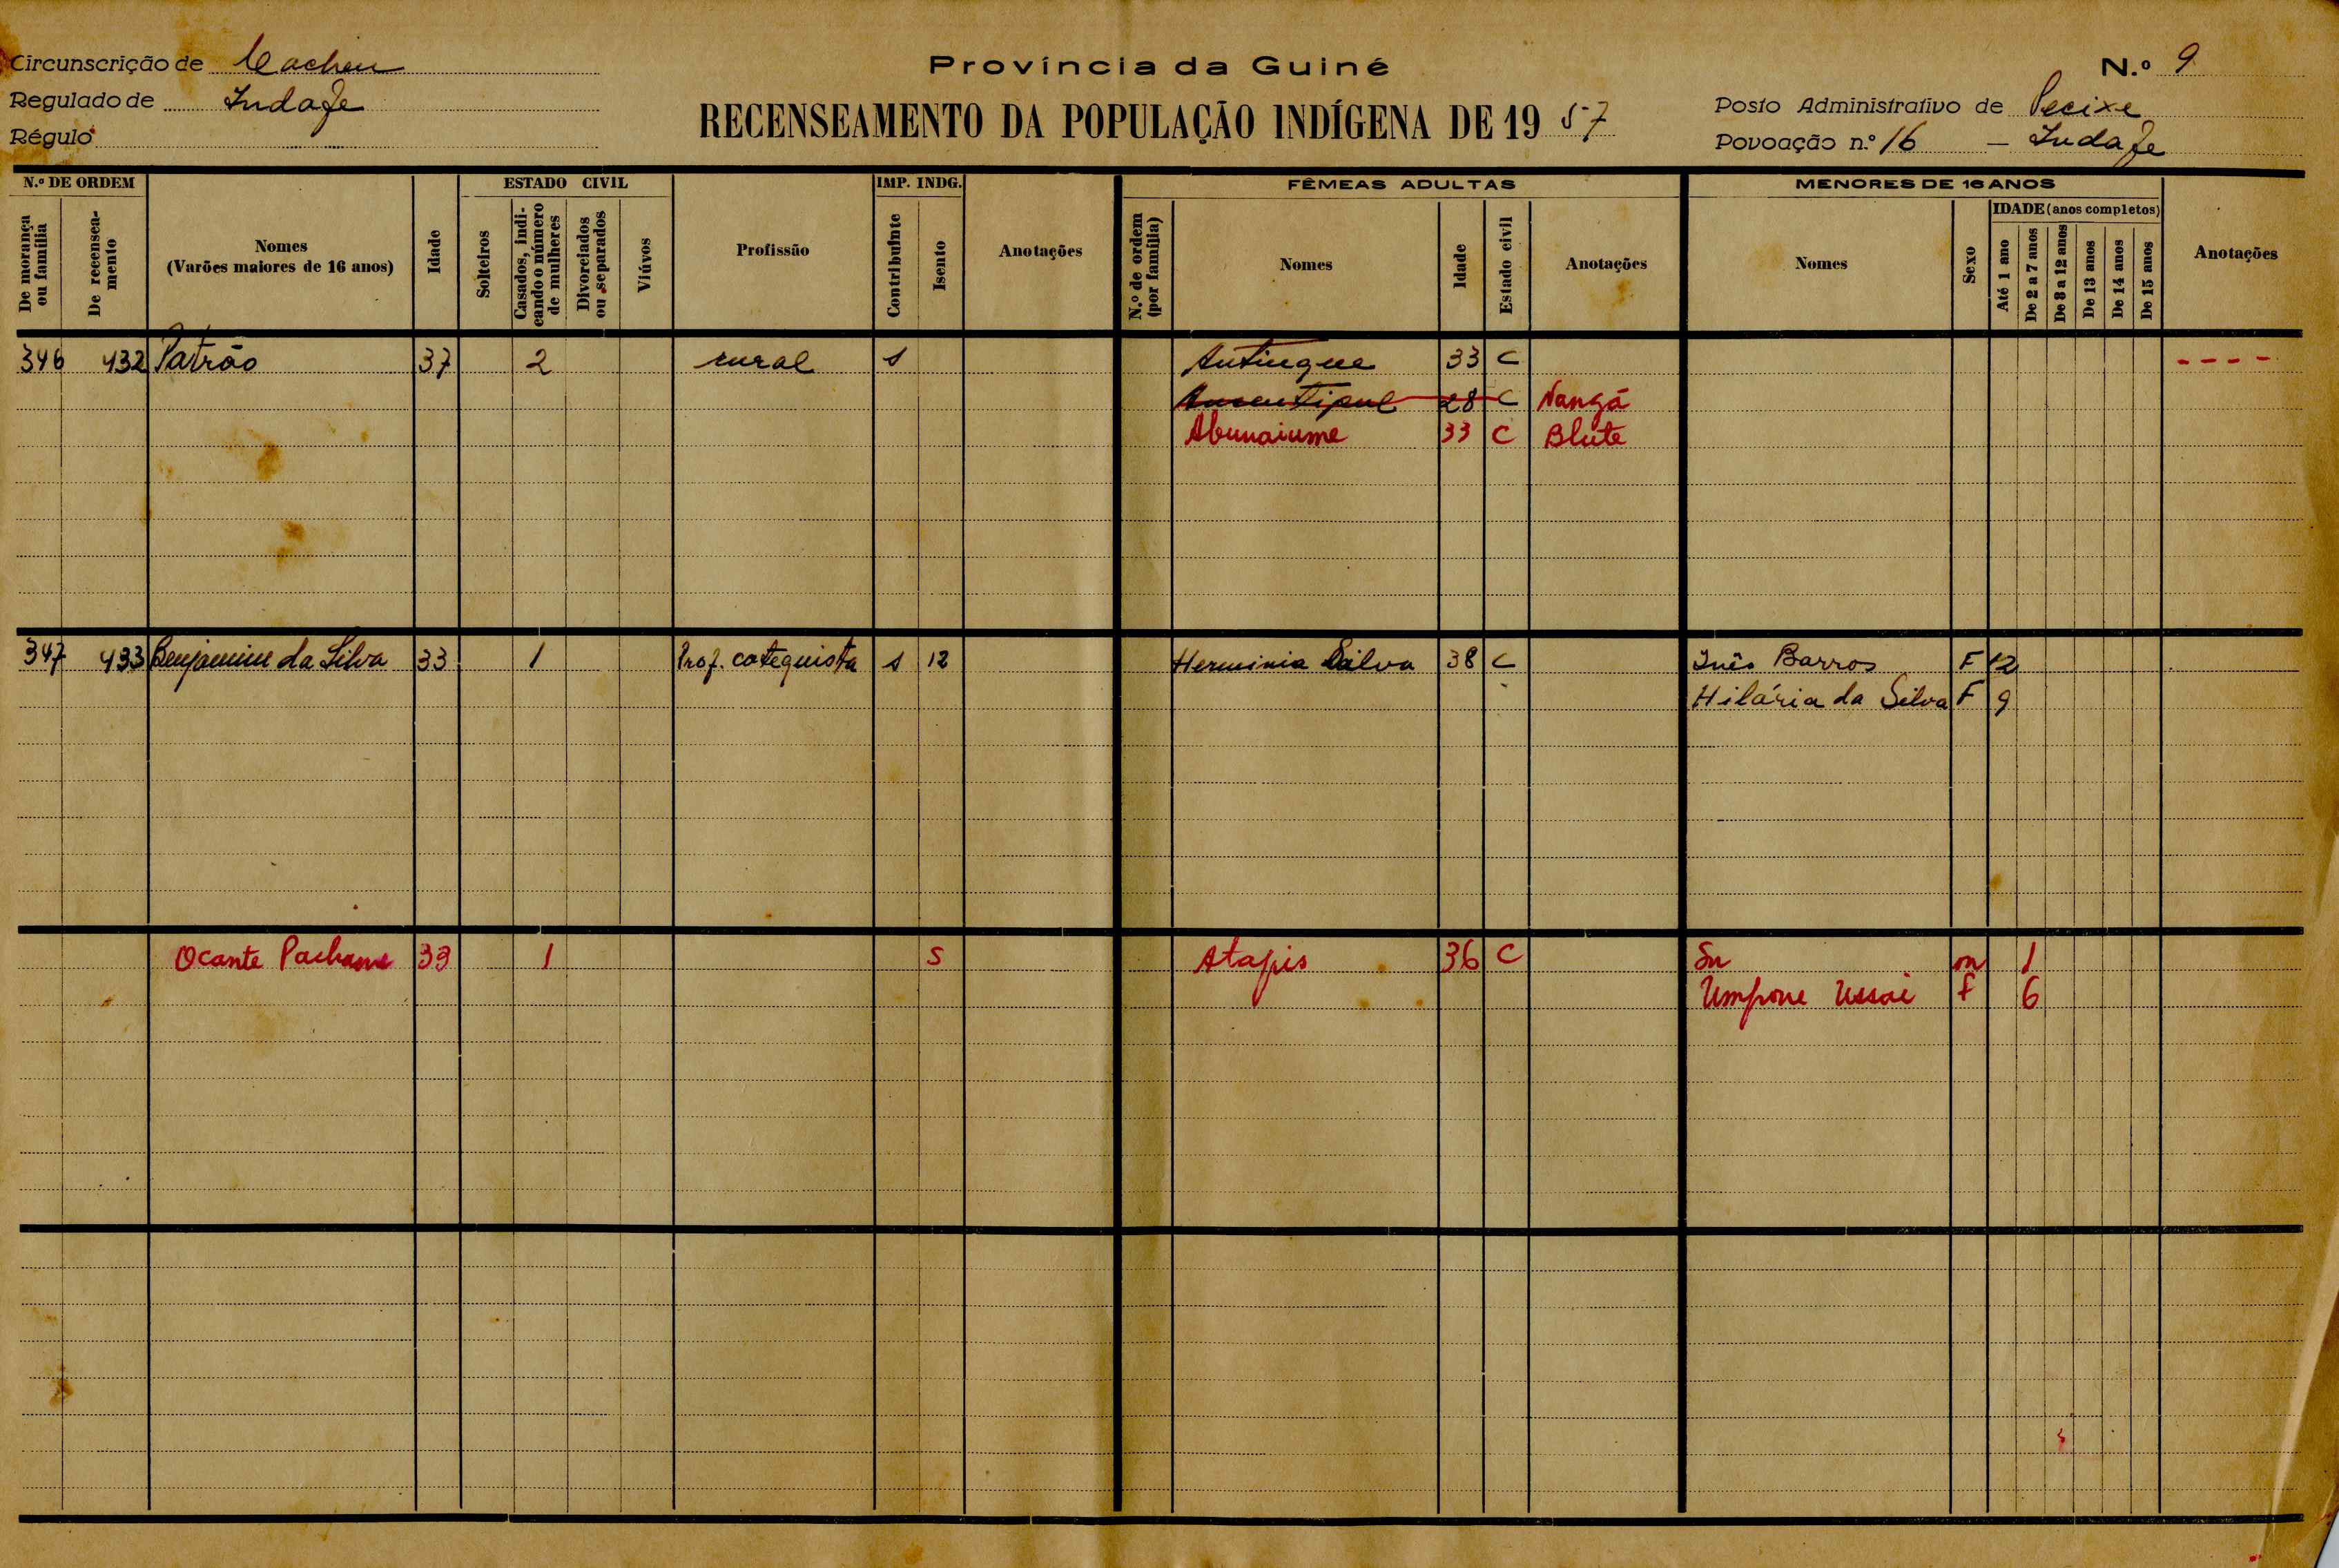 Circunscrição de Cacheu
Regulado de Indafe
Régulo
Província da Guiné
RECENSEAMENTO DA POPULAÇÃO INDÍGENA DE 19 57
N.º 9
Posto Administrativo de Pecixe
Povoação n.º 16 – Indafe
N.º DE ORDEM
De morança ou família
De recenseamento
Nomes
(Varões maiores de 16 anos)
Idade
ESTADO CIVIL
Solteiros
Casados, indicando o número de mulheres
Divorciados ou separados
Viúvos
Profissão
IMP. INDG.
Contribuinte
Isento
Anotações
FÊMEAS ADULTAS
N.º de ordem (por família)
Nomes
Idade
Estado civil
Anotações
MENORES DE 16 ANOS
Nomes
Sexo
IDADE (anos completos)
Até 1 ano
De 2 a 7 anos
De 8 a 12 anos
De 13 anos
De 14 anos
De 15 anos
Anotações
346 432 Patrão 37 2 rural s Antingue 33 C - - - -
28 C Nangá
Abunaiume 33 C Blute
347 433 Benjamim da Silva 33 1 Prof. catequista s 12 Herminia Silva 38 C Inês Barros F 12
Hilária da Silva F 9
Ocante Pachame 33 1 S Atapis 36 C Su m 1
Umpone Ussai F 6